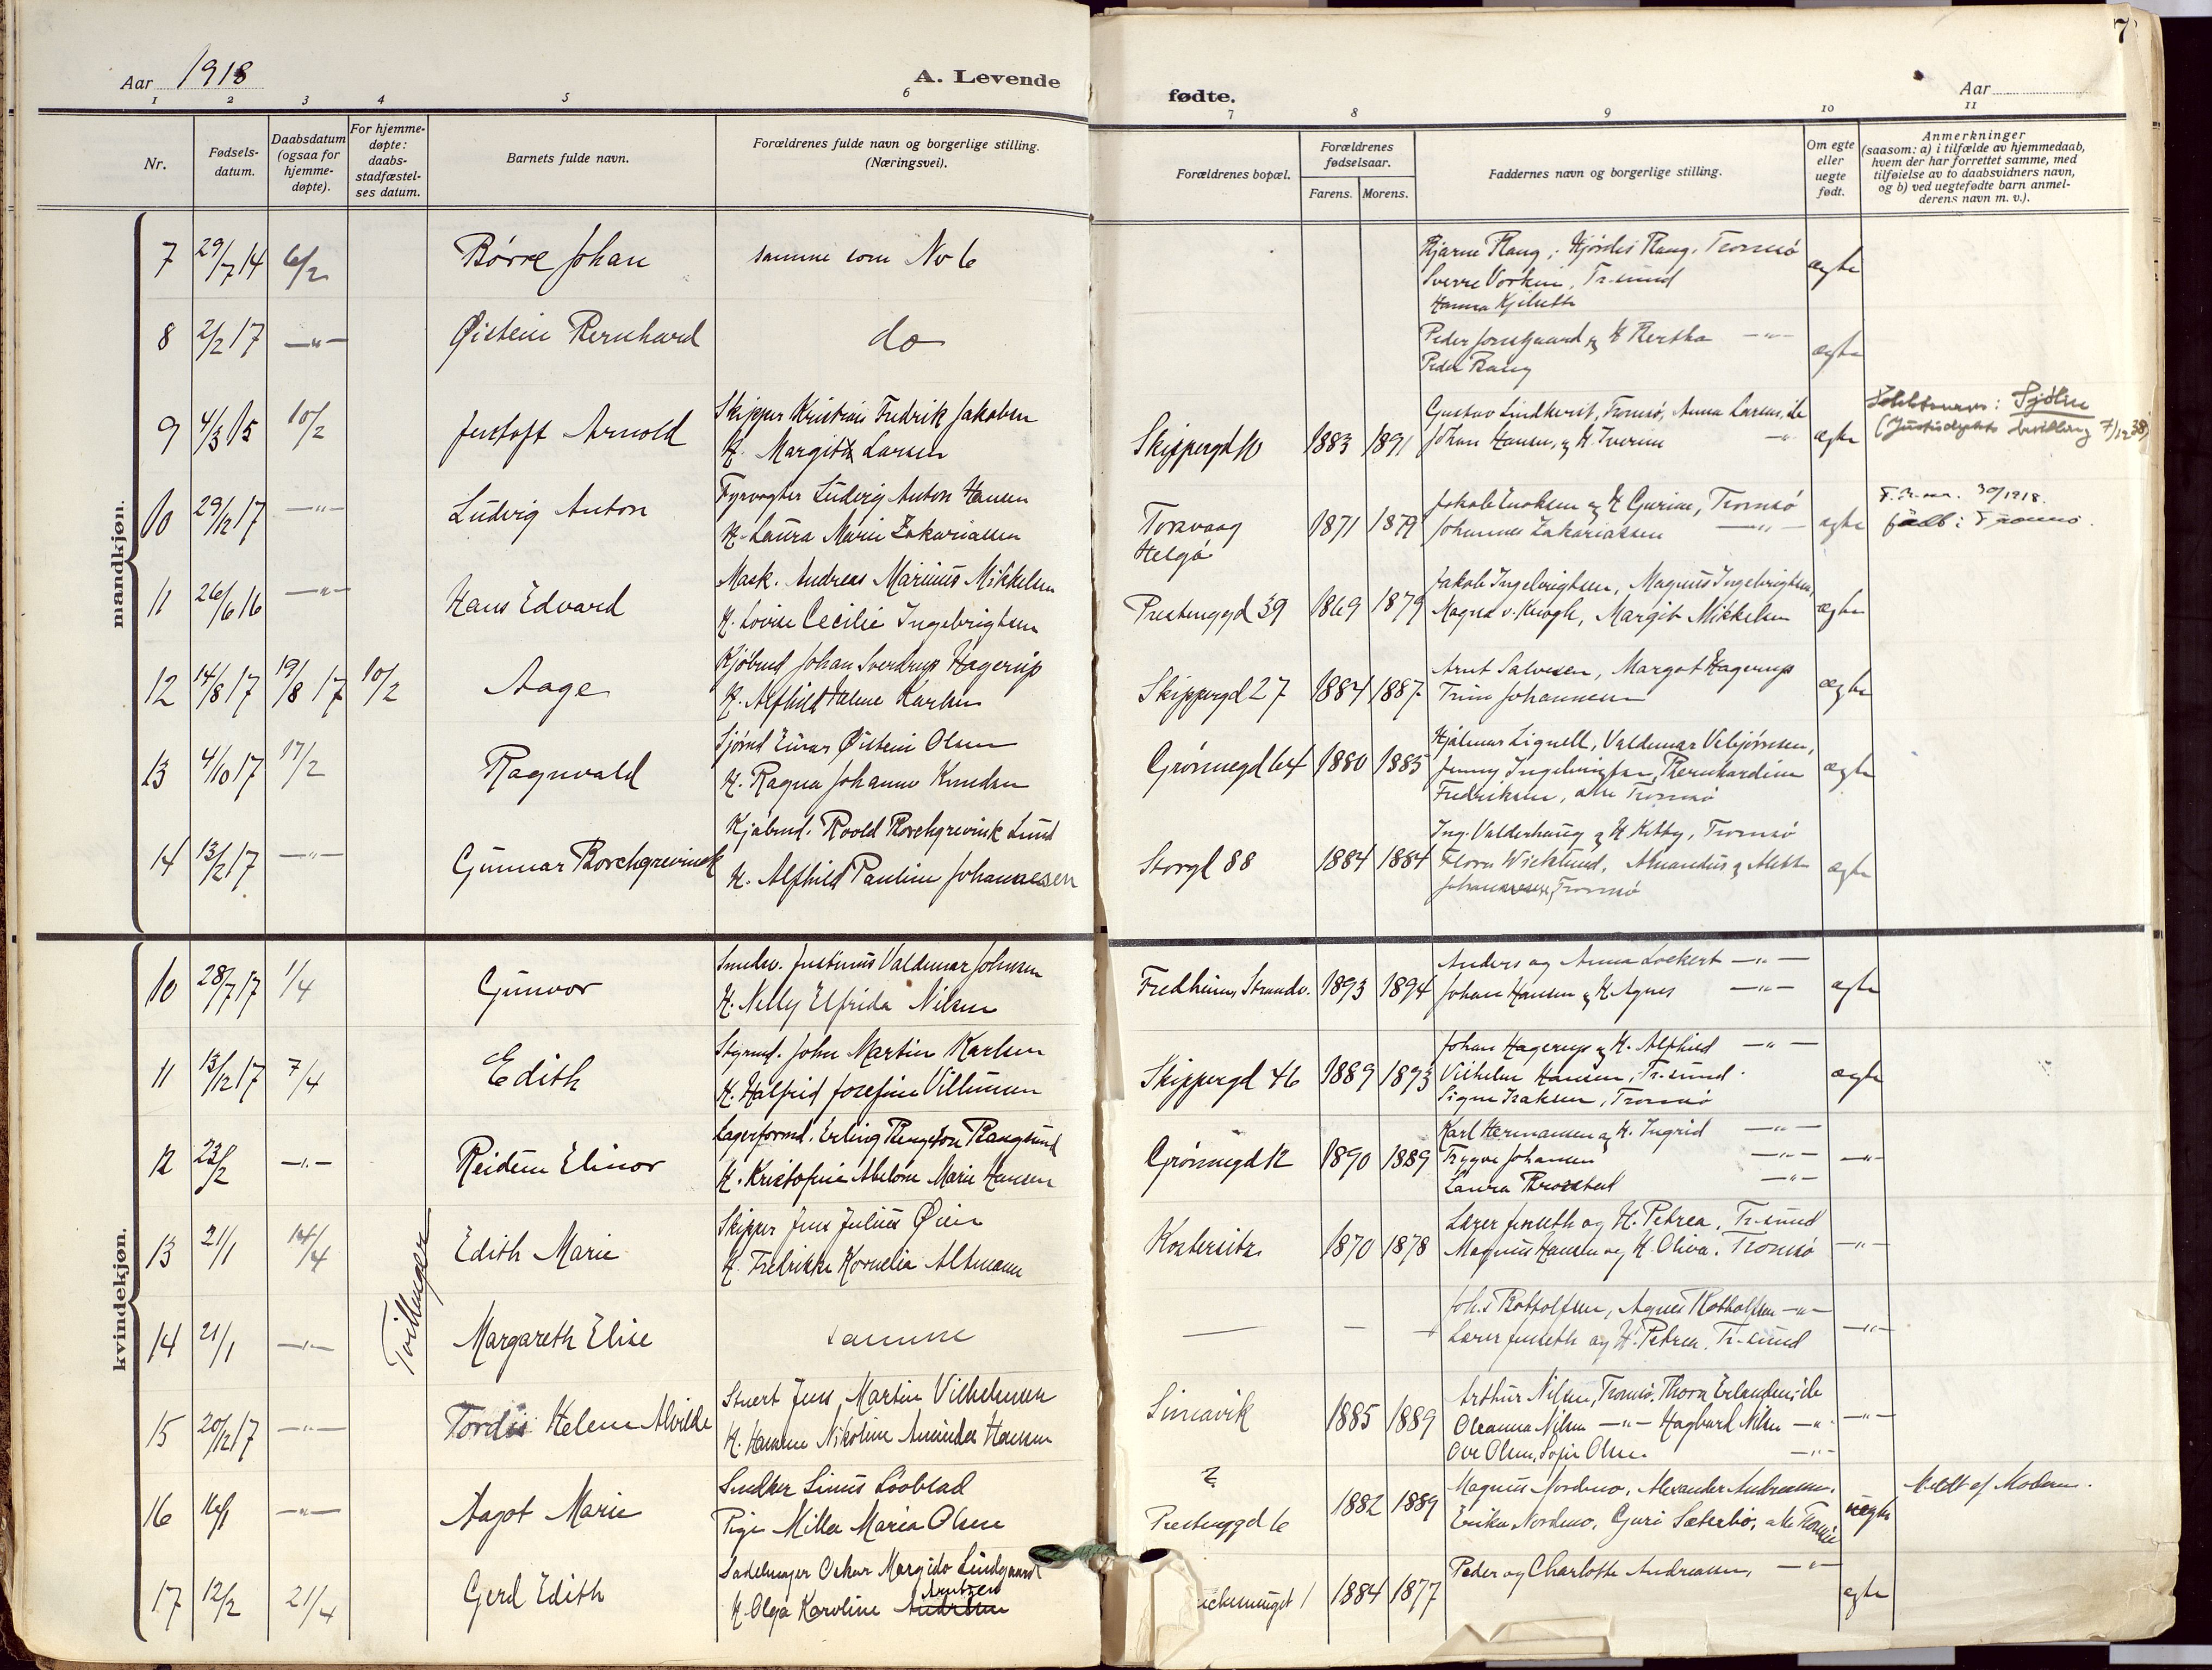 Aar 1918
A. Levende
fødte.
Aar
7
1 2 3 4 5 6 7 8 9 10 11
Nr.
Fødsels-
datum.
Daabsdatum
(ogsaa for
hjemme-
døpte).
For hjemme-
døpte:
daabs-
stadfæstel-
ses datum.
Barnets fulde navn.
Forældrenes fulde navn og borgerlige stilling.
(Næringsvei).
Forældrenes bopæl.
Forældrenes
fødselsaar.
Farens. Morens.
Faddernes navn og borgerlige stilling.
Om egte
eller
uegte
født.
Anmerkninger
(saasom: a) i tilfælde av hjemmedaab,
hvem der har forrettet samme, med
tilføielse av to daabsvidners navn,
og b) ved uegtefødte barn anmel-
derens navn m. v.).
mandkjøn.
7 29/7 14 6/2 Børre Johan samme som No 6
Bjarne Bang, Hjørdis Bang, Tromsø
Sverre Vorkin, Tr.sund
Hanna
ægte
8 2/2 17 —"— Øistein Bernhard do
Peder og H Bertha —"—
Peder Bang
ægte
9 4/3 15 10/2 Arnold
Skipper Kristian Fredrik Jakobsen
H. Margit Larsen
Skippergd 10 1883 1891
Gustav Lindkvist, Tromsø, Anna Larsen, do
Johan Hansen, og H. Iverine —"—
ægte
: Sjölin
(Justisdeptets bevilling 7/12 38)
10 29/12 17 —"— Ludvig Anton
Fyrvogter Ludvig Anton Hansen
H. Laura Marie Zakariassen
Torsvaag
Helgø
1871 1879
Jakob Enoksen og H Gurine, Tromsø
Johannes Zakariassen —"—
ægte
30/1 18.
født i Tromsø.
11 26/6 16 —"— Hans Edvard
Mask. Andreas Marinius Mikkelsen
H. Lovise Cecilie Ingebrigtsen
Prestenggd 39 1869 1879
Jakob Ingebrigtsen, Magnus Ingebrigtsen,
Magna v. Krogh, Margit Mikkelsen
ægte
12 14/8 17 19/8 17 10/2 Aage
Kjøbmd Johan Sverdrup Hagerup
H. Alfhild Karlsen
Skippergd 27 1884 1887
Arnt Salvesen, Margot Hagerup
Trine Johannesen
ægte
13 4/10 17 17/2 Ragnvald
Sjømd Einar Øistein Olsen
H. Ragna Johanne Knudsen
Grønnegd 64 1880 1885
Hjalmar Lignell, Valdemar Vebjørnsen,
Jenny Ingebrigtsen, Bernhardine
Fredriksen, alle Tromsø
ægte
14 13/2 17 —"— Gunnar Borchgrevink
Kjøbmd. Roold Borchgrevink Lund
H. Alfhild Pauline Johannesen
Storgt 88 1884 1884
Ing. Valderhaug og H Kitty, Tromsø
Wicklund, Amandus og
Johannesen, Tromsø
ægte
kvindekjøn.
10 28/7 17 1/4 Gunvor
Snedk. Justinus Valdemar Johnsen
H. Nelly Elfrida Nilsen
Fredheim, Strandv. 1893 1894
Anders og Anna Lockert —"—
Johan Hansen og H Agnes —"—
ægte
11 13/12 17 7/4 Edith
Styrmd. John Martin Karlsen
H. Halfrid Josefine Villumsen
Skippergd 46 1889 1893
Johan Hagerup og H. Alfhild —"—
Vilhelm Hansen, Tr.sund.
Signe Isaksen, Tromsø
ægte
12 23/2 —"— Reidun Elinor
Lagerformd. Erling Bangsund
H. Kristofine Abelone Marie Hansen
Grønnegd 12 1890 1889
Karl Hermansen og H. Ingrid —"—
Trygve Johansen —"—
Laura —"—
—"—
Tvillinger
13 21/1 14/4 Edith Marie
Skipper Jens Julius Øien
H. Fredrikke Kornelia Altmann
1870 1878
Lærer Jenseth og H. Petrea, Tr-sund
Magnus Hansen og H. Oliva, Tromsø
—"—
14 21/1 —"— Margareth Elise samme
— — —
Johs Rotvoldsen, Agnes —"—
Lærer Jenseth og H. Petrea, Tr-sund
—"—
15 20/12 17 —"— Tordis Helene Alvilde
Stuert Jens Martin Vilhelmsen
H. Hanna Nikoline Amunda Hansen
Simavik 1885 1889
Arthur Nilsen, Tromsø, Thora Erlandsen, do
Oleanna Nilsen —"— Hagbard Nilsen —"—
Ole Olsen, Sofie Olsen —"—
—"—
16 16/1 —"— Aagot Marie
Snedker Linus Lööblad
Pige Milla Maria Olsen
?
Prestenggd 6
1882 1889
Magnus Nordmo, Alexander Andreassen,
Erika Nordmo, Guri Sæterbø, alle Tromsø
uægte
Meldt af Moderen.
17 12/2 21/4 Gerd Edith
Sadelmager Oskar Margido Lindgaard
H Olga Karoline Arntzen
1 1884 1877
Peder og Charlotte Andreassen, —"—
ægte